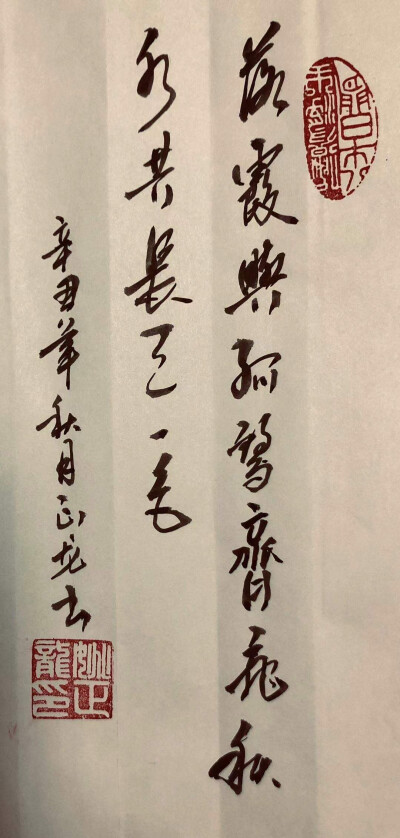 落霞與孤鶩齊飛秋
水共長天一色
辛丑年秋月正龙书
正
龍印